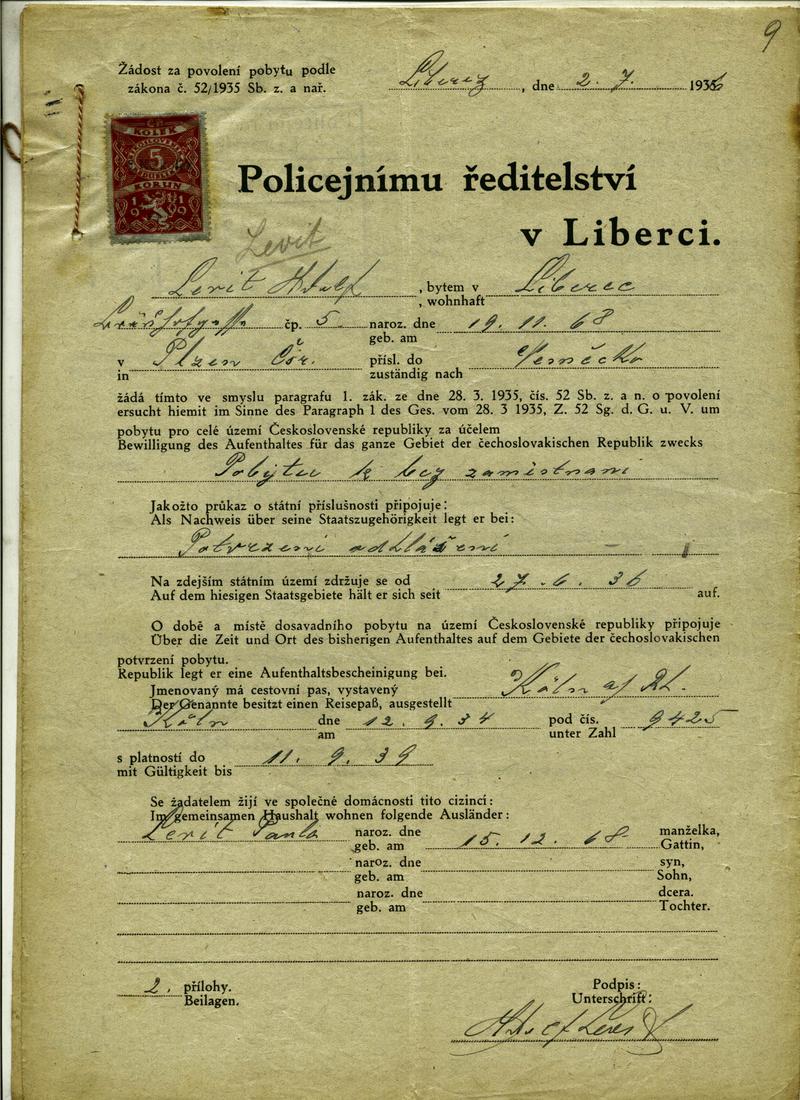 9
Žádost za povolení pobytu podle
zákona č. 52/1935 Sb. z. a nař.
Liberec, dne 2. 7. 1936
KOLEK
5
KORUN
Policejnímu ředitelství
v Liberci.
Levit
Levit Adolf, bytem v Liberec
, wohnhaft
čp. 5 naroz. dne 19. 11. 68
geb. am
v Plzen Čsr. přísl. do Německo
in zuständig nach
žádá tímto ve smyslu paragrafu 1. zák. ze dne 28. 3. 1935, čís. 52 Sb. z. a n. o povolení
ersucht hiemit im Sinne des Paragraph 1 des Ges. vom 28. 3 1935, Z. 52 Sg. d. G. u. V. um
pobytu pro celé území Československé republiky za účelem
Bewilligung des Aufenthaltes für das ganze Gebiet der čechoslovakischen Republik zwecks
Pobytu k bez zamistnani
Jakožto průkaz o státní příslušnosti připojuje:
Als Nachweis über seine Staatszugehörigkeit legt er bei:
Potvrzeni odhlášení
Na zdejším státním území zdržuje se od 27. 6. 36
Auf dem hiesigen Staatsgebiete hält er sich seit auf.
O době a místě dosavadního pobytu na území Československé republiky připojuje
Über die Zeit und Ort des bisherigen Aufenthaltes auf dem Gebiete der čechoslovakischen
potvrzení pobytu.
Republik legt er eine Aufenthaltsbescheinigung bei.
Jmenovaný má cestovní pas, vystavený Köln a/ Rh.
Der Genannte besitzt einen Reisepaß, ausgestellt
Köln dne 12. 9. 34 pod čís. 9425
am unter Zahl
s platností do 11. 9. 39
mit Gültigkeit bis
Se žadatelem žijí ve společné domácnosti tito cizinci:
Im gemeinsamen Haushalt wohnen folgende Ausländer:
Levit Paula naroz. dne 15. 12. 68 manželka,
geb. am Gattin,
naroz. dne syn,
geb. am Sohn,
naroz. dne dcera.
geb. am Tochter.
2. přílohy. Podpis:
Beilagen. Unterschrift:
Adolf Levit